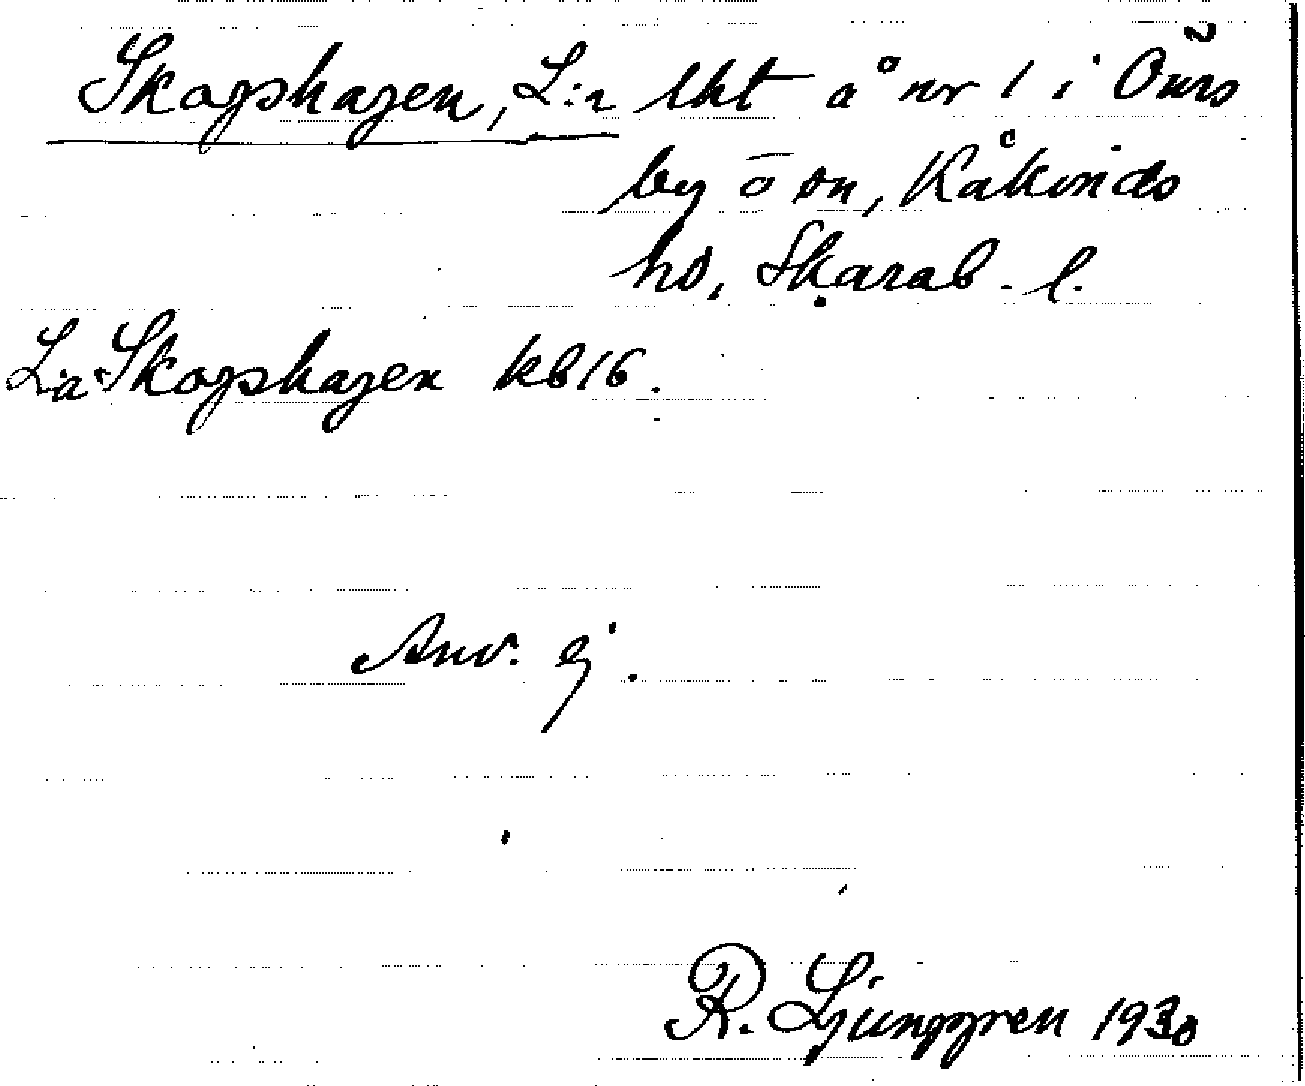 Skogshagen, L:a lht å nr 1 i Öms
by o sn, Kåkinds
hd, Skarab. l.
L:a Skogshagen kb 16.
Anv. ej.
R. Ljunggren 1930